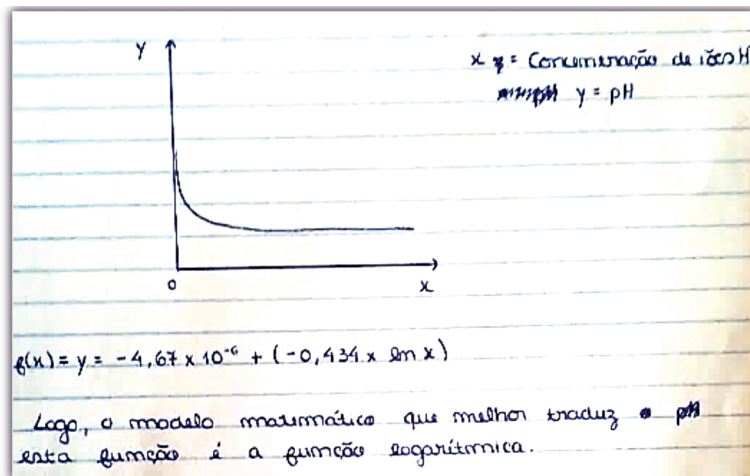 y
x = Concentração de iões H
y = pH
0
x
f(x) = y = -4,67 x 10⁻⁶ + (-0,434 x ln x)
Logo, o modelo matemático que melhor traduz
esta função é a função logarítmica.